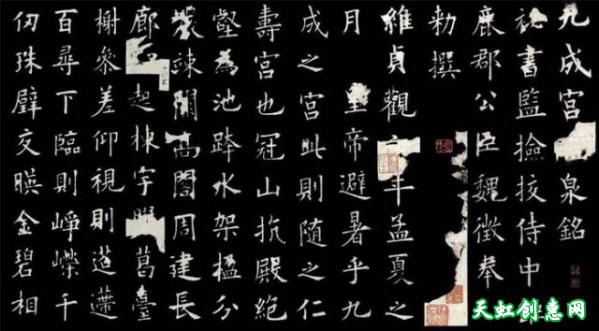 九成宮泉銘
祕書監撿挍侍中
鹿郡公臣魏徵奉
勅撰
維貞觀年孟夏之
月 皇帝避暑乎九
成之宮此則隨之仁
壽宮也冠山抗殿絕
壑為池跨水架楹分
巖竦闕高閣周建長
廊四起棟宇葛臺
榭參差仰視則迢遰
百尋下臨則崢嶸千
仞珠璧交暎金碧相
天虹创意网